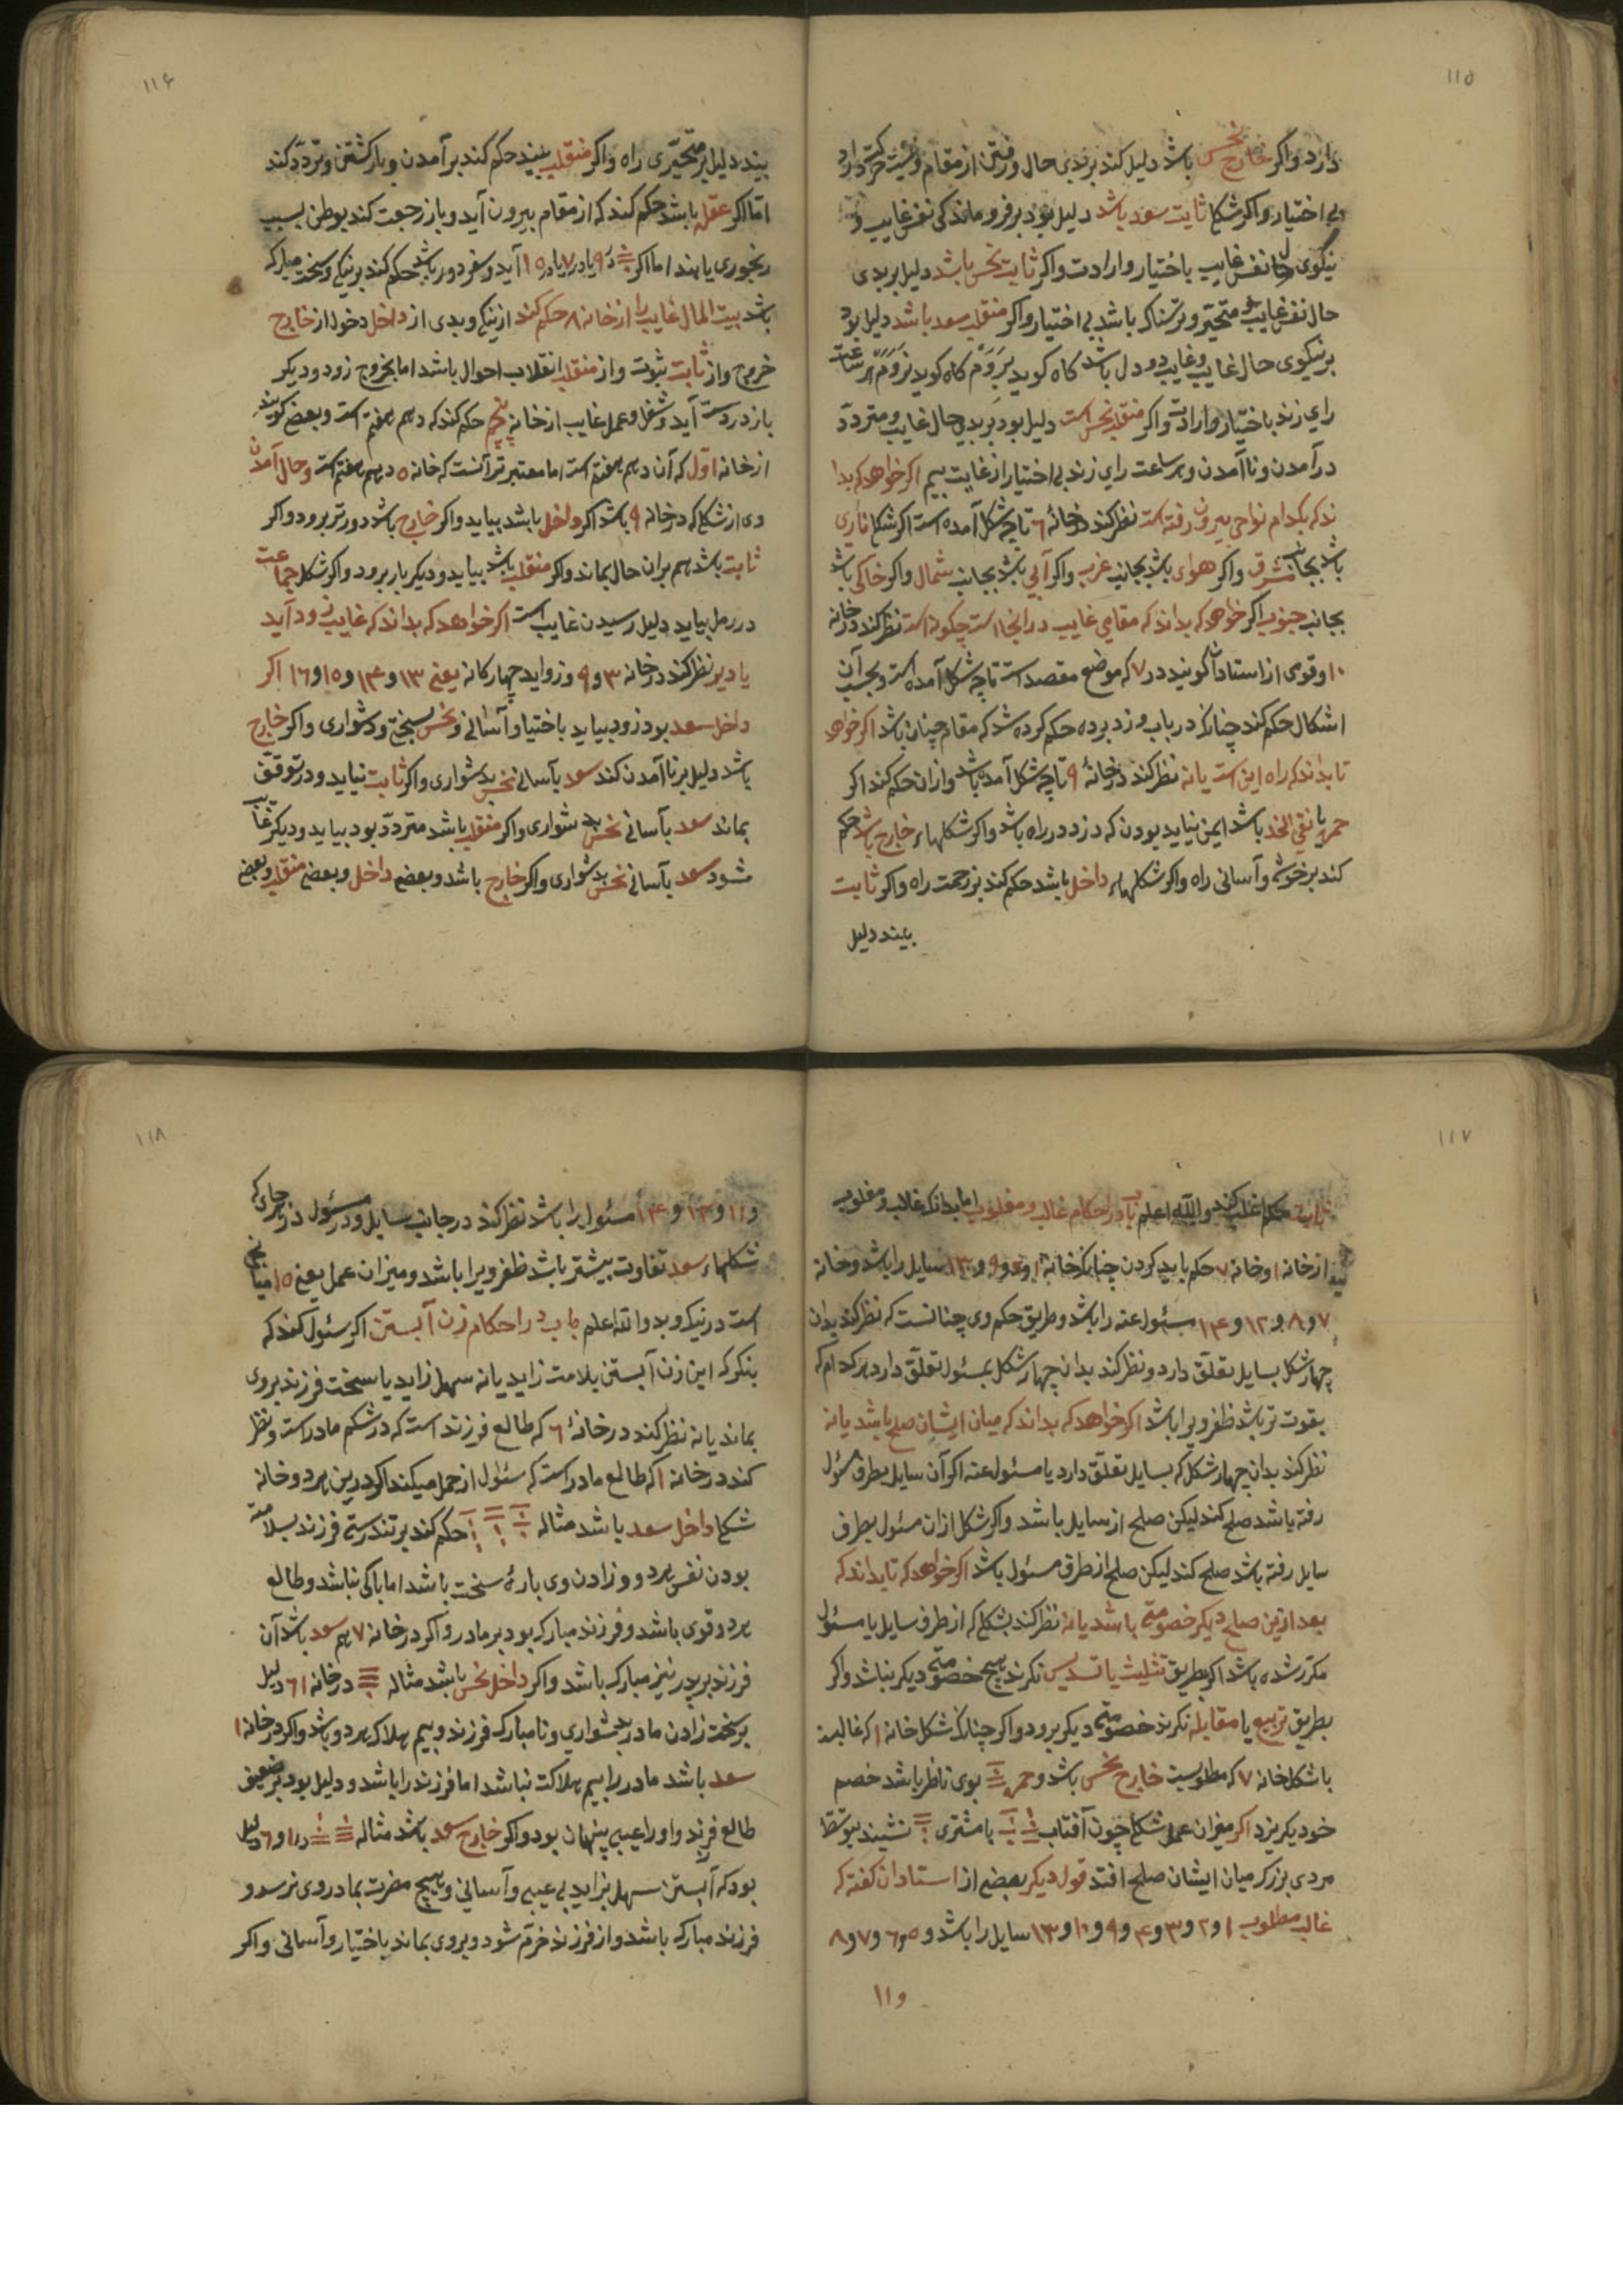 ١١٥
دارد واکر خارج نحس باشد دلیل کند بر بدی حال و رفتن از مقام
بی اختیار واکر شکل ثابت سعد باشد دلیل بود بر فروماندکی نفس غایب و
نیکوی حال نفس غایب باختیار و ارادت واکر ثابت نحس باشد دلیل بر بدی
حال نفس غایب متحیر و ترسناک باشد بی اختیار واکر منقلب سعد باشد دلیل بود
بر نیکوی حال غایب و غایب دو دل باشد کاه کوید بروم کاه کوید نروم هر ساعت
رای زند باختیار و ارادت واکر منقلب نحس است دلیل بود بر بدی حال غایب و متردد
در آمدن و ناآمدن و هر ساعت رای زند بی اختیار از غایت بیم اکر خواهد که بدا
ند که بکدام نواحی بیرون رفته است نظر کند در خانهٔ ٦ تا چه شکل آمده است اکر شکل ناری
باشد بجانب مشرق واکر هوای باشد بجانب غرب واکر آبی باشد بجانب شمال واکر خاکی باشد
بجانب جنوب اکر خواهد که بداند که مقامی غایب در انجا است چکونه است نظر کند در خانه
١٠ وقومی از استادان کویند در ٧ که موضع مقصد است تا چه شکل آمده است و بحسب آن
اشکال حکم کند چنانکه در باب دزد برده حکم کرده شد که مقام چنان باشد اکر خواهد
تا بداند که راه ایمن است یا نه نظر کند در خانهٔ ٩ تا چه شکل آمده باشد و از ان حکم کند اکر
حمره یا نقی الخد باشد ایمن نباید بودن که دزد در راه باشد واکر شکلهاء خارج باشد حکم
کند بر خوشی و آسانی راه واکر شکلهاء داخل باشد حکم کند بر زحمت راه واکر ثابت
بیند دلیل
١١۶
بیند دلیل بر متحیری راه واکر منقلب بیند حکم کند بر آمدن و باز کشتن و تردد کند
اما اکر عقله باشد حکم کند که از مقام بیرون آید و باز رجعت کند بوطن بسبب
رنجوری یا بند اما اکر در ٩ یا در ٧ یا در ١٥ آید و سفر دور باشد حکم کند بر نیکی و سخت مبارک
باشد بیت المال غایب را از خانه ٨ حکم کند از نیکی و بدی از داخل دخول از خارج
خروج و از ثابت ثبوت و از منقلب انقلاب احوال باشد اما بخروج زود و دیکر
باز در دست آید و شغل و عمل غایب از خانه پنجم حکم کند که دهم هفتم است و بعضی کویند
از خانه اول که آن دهم هفتم است اما معتبرتر آنست که خانه ٥ دهم هفتم است و حال آمدن
وی از شکلی که در خانه ٩ باشد اکر داخل باشد بیاید واکر خارج باشد دورتر برود واکر
ثابت باشد هم بران حال بماند واکر منقلب باشد بیاید و دیکر بار برود واکر شکل جماعت
در رمل بیاید دلیل رسیدن غایب است اکر خواهد که بداند که غایب زود آید
یا دیر نظر کند در خانه ٣ و ٩ و زواید چهارکانه یعنی ١٣ و ١۴ و ١٥ و ١٦ اکر
داخل سعد بود زود بیاید باختیار و آسانی و نحس بسختی و دشواری واکر خارج
باشد دلیل بر ناآمدن کند سعد بآسانی نحس بدشواری واکر ثابت نیاید و در توقف
بماند سعد بآسانی نحس بدشواری واکر منقلب باشد متردد بود بیاید و دیکر غایب
شود سعد بآسانی نحس بدشواری واکر خارج باشد و بعضی داخل و بعضی منقلب و بعضی
١١٧
ثابت حکم اغلب کند والله اعلم باب در احکام غالب و مغلوب اما بدانکه غالب و مغلوب
از خانه ١ و خانه ٧ حکم باید کردن چنانکه خانه ١ و ٩ و ١٣ سایل را باشد و خانه
٧ و ٨ و ١٢ و ١۴ مسئول عنه را باشد و طریق حکم وی چنانست که نظر کند بدان
چهار شکل بسایل تعلق دارد و نظر کند بدان چهار شکل بمسئول تعلق دارد هر کدام که
بقوت تر باشد ظفر ویرا باشد اکر خواهد که بداند که میان ایشان صلح باشد یا نه
نظر کند بدان چهار شکل که بسایل تعلق دارد یا مسئول عنه اکر آن سایل بطرف مسئول
رفته باشد صلح کند لیکن صلح از سایل باشد واکر شکل ازان مسئول بطرف
سایل رفته باشد صلح کند لیکن صلح از طرف مسئول باشد اکر خواهد که تا بداند که
بعد ازین صلح دیکر خصومتی باشد یا نه نظر کند بشکلی که از طرف سایل یا مسئول
مکرر شده باشد اکر بطریق تثلیث یا تسدیس نکرند هیچ خصومتی دیکر نباشد واکر
بطریق تربیع یا مقابله نکرند خصومتی دیکر برود واکر چنانکه شکل خانه ١ که غالبست
با شکل خانه ٧ که مطلوبست خارج نحس باشد و حمره بوی ناظر باشد خصم
خود بکریزد اکر میزان عمل شکلی چون آفتاب یا مشتری نشیند بتوسط
مردی بزرک میان ایشان صلح افتد قول دیکر بعضی از استادان کفته که
غالب مطلوب ١ و ٢ و ٣ و ۴ و ٩ و ١٠ و ١٣ سایل را باشد و ٥ و ٦ و ٧ و ٨
و ١١
١١٨
و ١١ و ١٢ و ١۴ مسئول را باشد نظر کند در جانب سایل و در مسئول در هر جای که
شکلهاء سعد تفاوت بیشتر باشد ظفر ویرا باشد و میزان عمل یعنی ١٥
است در نیک و بد والله اعلم باب در احکام زن آبستن اکر سئول کند که
بنکر که این زن آبستن بلامت زاید یا نه سهل زاید یا سخت فرزند بروی
بماند یا نه نظر کند در خانهٔ ٦ که طالع فرزند است که در شکم مادر است و نظر
کند در خانه ١ که طالع مادر است که سئول از حمل میکند اکر درین هر دو خانه
شکل داخل سعد باشد مثاله حکم کند بر تندرستی فرزند بسلامت
بودن نفس هر دو و زادن وی پارهٔ سخت باشد اما باکی نباشد و طالع
هر دو قوی باشد و فرزند مبارک بود بر مادر و اکر در خانه ٧ هم سعد باشد آن
فرزند بر پدر نیز مبارک باشد واکر داخل نحس باشد مثاله در خانه ١ ٦ دلیل
بر سخت زادن مادر بدشواری و نامبارک فرزند و بیم هلاک هر دو باشد واکر در خانه ١
سعد باشد مادر را بیم هلاکت نباشد اما فرزند را باشد و دلیل بود بر ضعیف
طالع فرزند و او را عیبی پنهان بود واکر خارج سعد باشد مثاله در ١ و ٦ دلیل
بود که آبستن سهل بزاید بی عیبی و آسانی و هیچ مضرت بمادر وی نرسد و
فرزند مبارک باشد و از فرزند خرم شود و بروی بماند باختیار و آسانی واکر